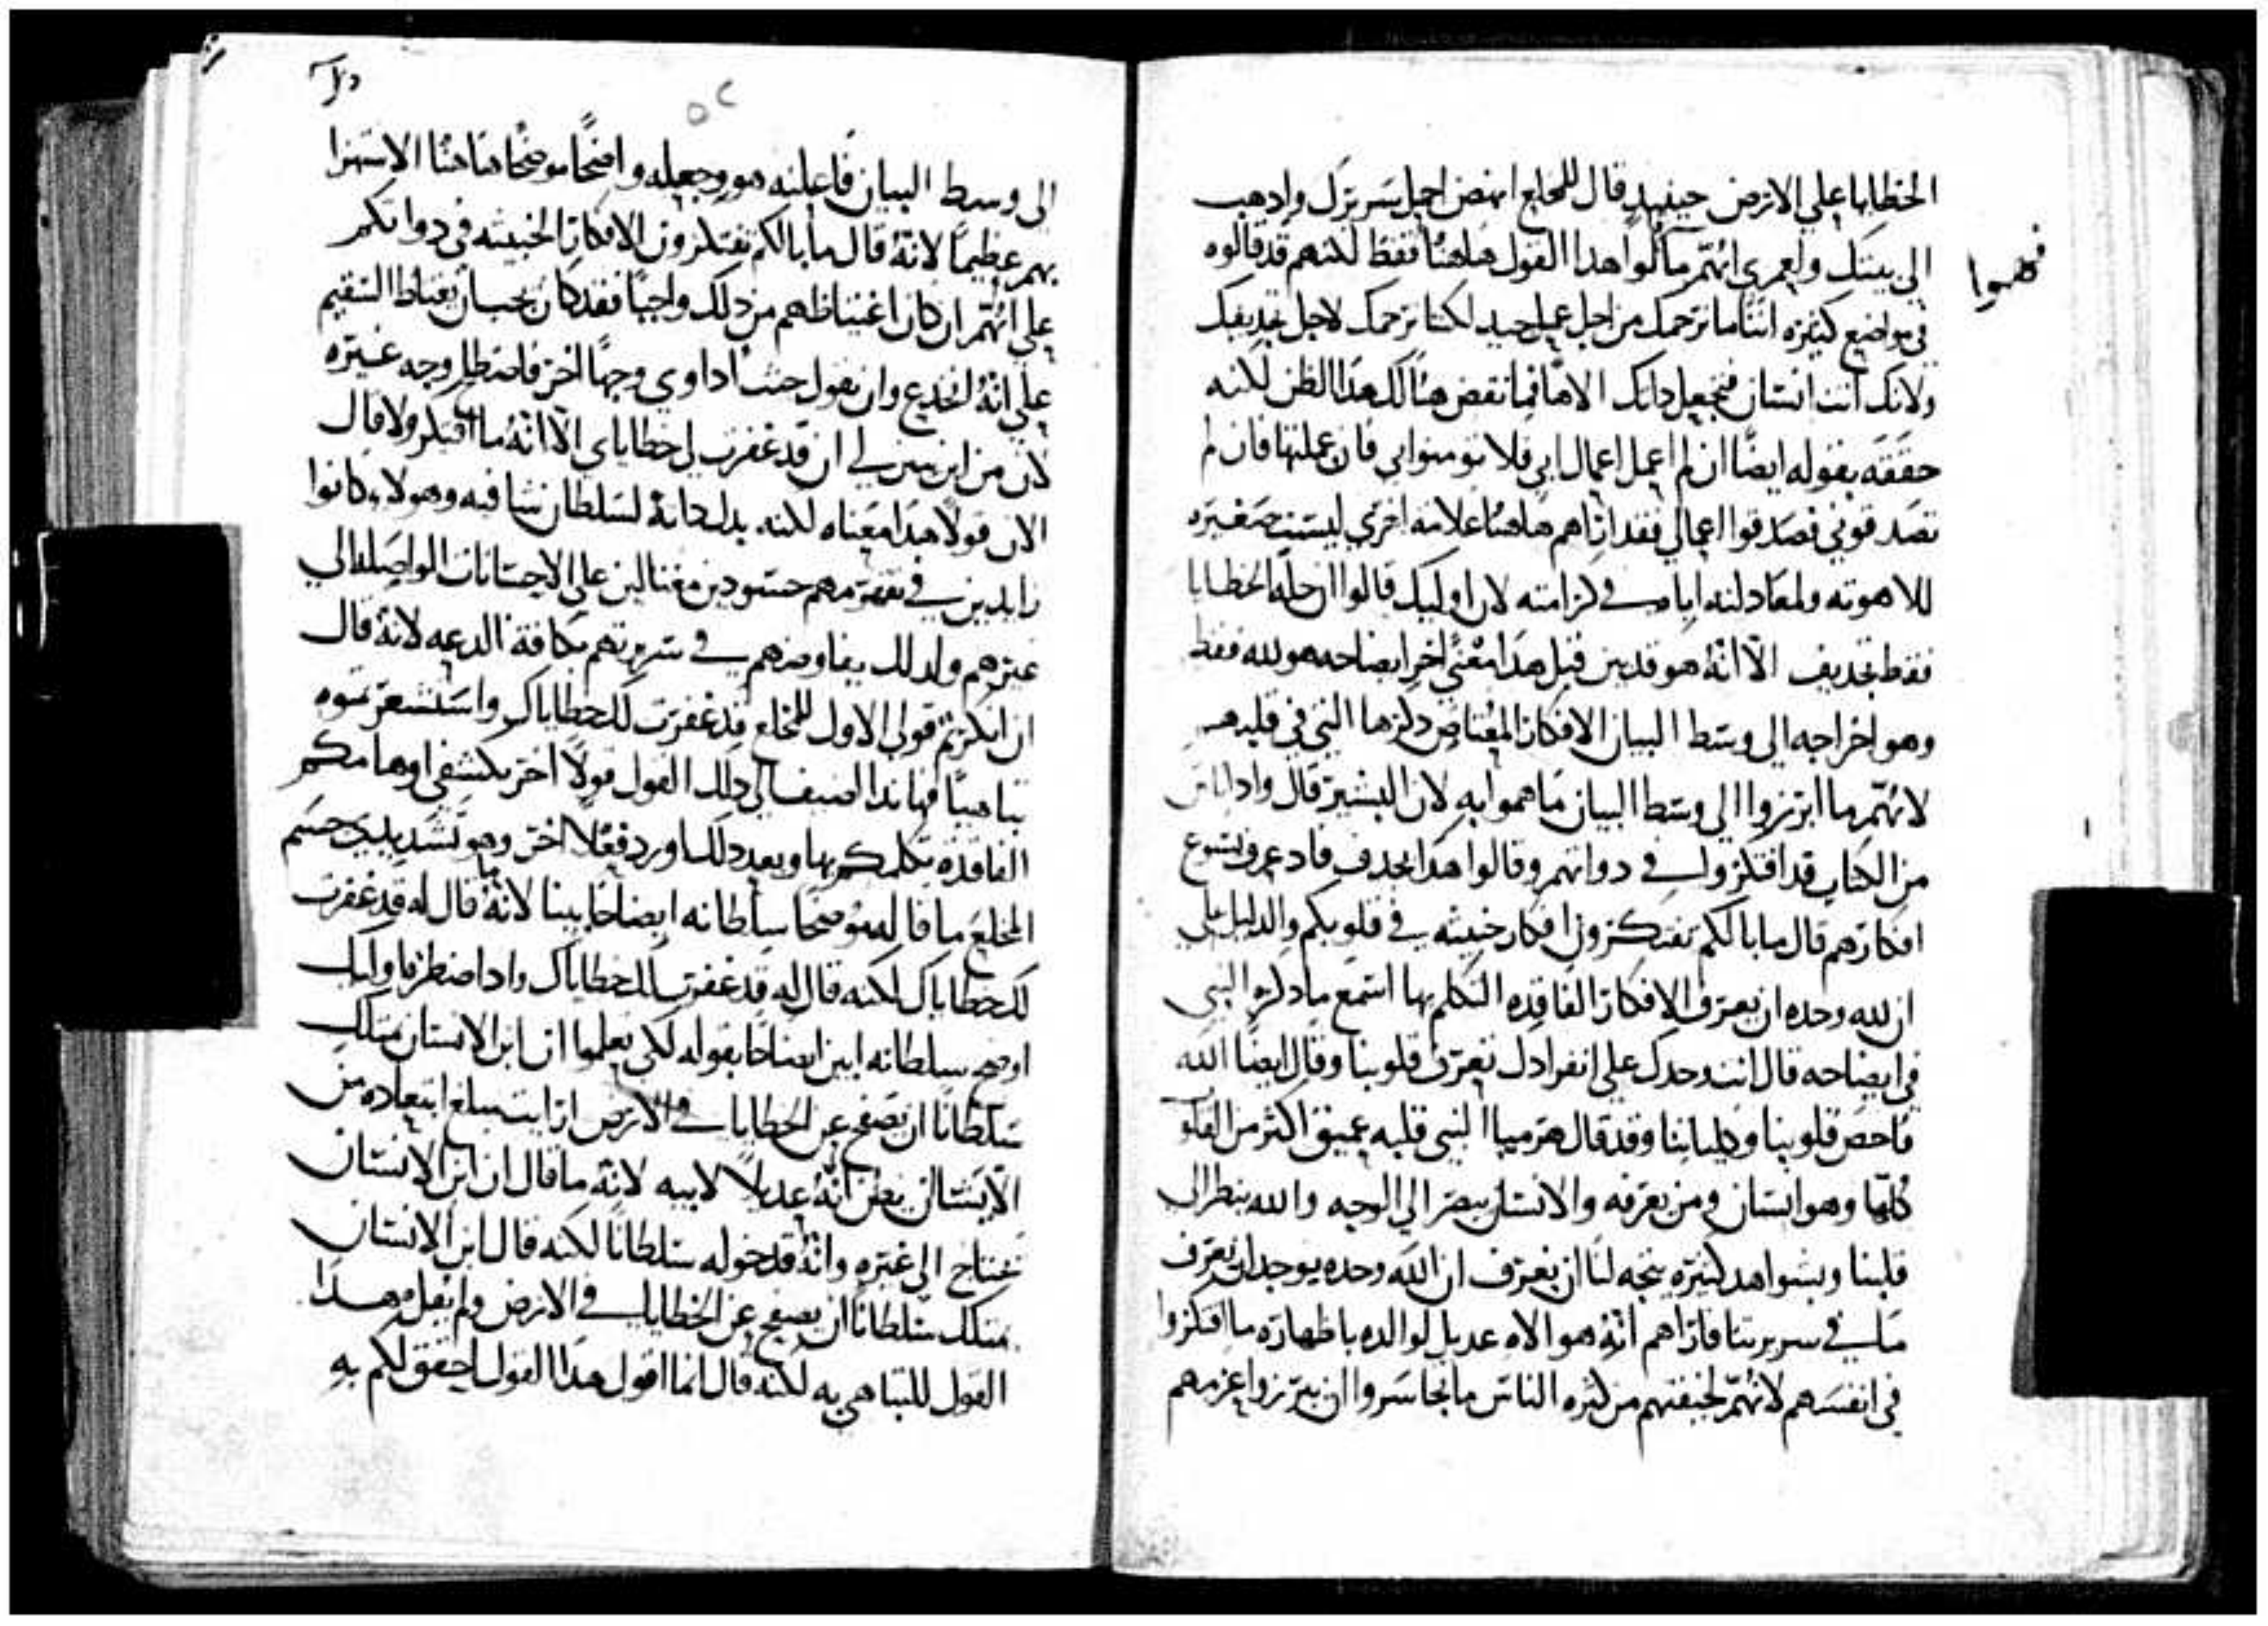 الخطايا على الارض حينيدٍ قال للمخلع انهض احمل سريرك وادهب
الي بيتك ولعمري انهم ما قالوا هدا القول هاهنا فقط لكنهم قد قالوه
فهموا
في مواضع كثيره اننا ما نرجمك من اجل عمل جيد لكننا نرجمك لاجل تجديفك
ولانك انت انسان فتجعل داتك الاهًا فما نقض هناك هدا الظن لكنه
حققه بقوله ايضًا ان لم اعمل اعمال ابي فلا تومنوا بي فان عملتها فان لم
تصدقوني فصدقوا اعمالي فقد اراهم هاهنا علامه اخري ليست صغيره
للاهوته ولمعادلته اباه في كرامته لان اوليك قالوا ان حل الخطايا
فقط تجديف الّا انه هو قد بين قبل هدا معنيً اخر ايضاحه هو لله فقط
وهو اخراجه الي وسط البيان الافكار المعتاص دكرها التي في قلبهم
لانهم ما ابرزوا الي وسط البيان ما هموا به لان البشير قال وادا اناس
من الكتاب قد افتكروا في دواتهم وقالوا هدا يجدف فاد عرف يسوع
افكارهم قال ما بالكم تفتكرون افكار خبيثه في قلوبكم والدليل على
ان لله وحده ان يعرف الافكار الفاقده التكلم بها استمع ما دكره النبي
في ايضاحه قال انت وحدك على انفرادك تعرف قلوبنا وقال ايضًا الله
فاحص قلوبنا وكليايتنا وقد قال هرميا النبي قلبه عميق اكثر من القلوب
كلها وهو انسان ومن يعرفه والانسان يبصر الي الوجه والله ينظر الى
قلبنا وبشواهد كثيره يتجه لنا ان نعرف ان الله وحده يوجد له ان يعرف
ما في سريرتنا فاراهم انه هو الاه عديل لوالده باظهاره ما افتكروا
في انفسهم لانهم لخيفتهم من كثره الناس ما تجاسروا ان يبرزوا عزمهم
٥٢
الى وسط البيان فاعلنه هو وجعله واضحًا موضحًا هاهنا الاستهزا
بهم عظيمًا لانه قال ما بالكم تفتكرون الافكار الخبيثه في دواتكم
على انهم ان كان اغتياظهم من دلك واجبًا فقد كان يجب ان يغتاظ السقيم
على انه انخدع وان يقول جيت اداوي وجهًا اخر فاصطلح وجه غيره
لان من اين يبين لي ان قد غفرت لي خطاياي الّا انه ما افتكر ولا قال
الان قولًا هدا معناه لكنه بدل داته لسلطان شافيه وهولاء كانوا
زايدين في نفقتهم حسودين مغتالين على الاحسانات الواصله الي
غيرهم ولدلك يفاوضهم في سريرتهم بكافة الدعه لانه قال
ان انكرتم قولي الاول للمخلع قد غفرت لك خطاياك واستشعرتموه
تباهيًا فهاندا اضيف الي دلك القول قولًا اخر يكشف اوهامكم
الفاقده تكلمكم بها وبعد دلك اورد فعلًا اخر وهو تشديد جسم
المخلع ما قاله موضحًا سلطانه ايضاحًا بينا لانه ما قال له قد غفرت
لك خطاياك لكنه قال له قد غفرت لك خطاياك وادا اضطره اوليك
اوضح سلطانه ابين ايضاحًا بقوله لكي تعلموا ان ابن الانسان يملك
سلطانًا ان يصفح عن الخطايا في الارض ارايت مبلغ ابتعاده من
الا يشا ان يظن انه عديلًا لابيه لانه ما قال ان ابن الانسان
يحتاج الى غيره وانه قد خوله سلطانًا لكنه قال ابن الانسان
يملك سلطانًا ان يصفح عن الخطايا في الارض ولم يقل هدا
القول للتباهي به لكنه قال انما اقول هدا القول لاحقق لكم به